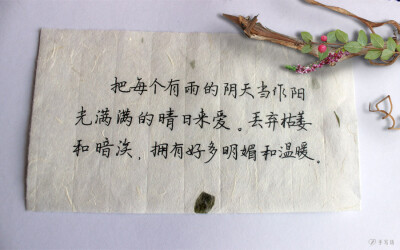 把每个有雨的阴天当作阳
光满满的晴日来爱。丢弃枯萎
和暗淡，拥有好多明媚和温暖。